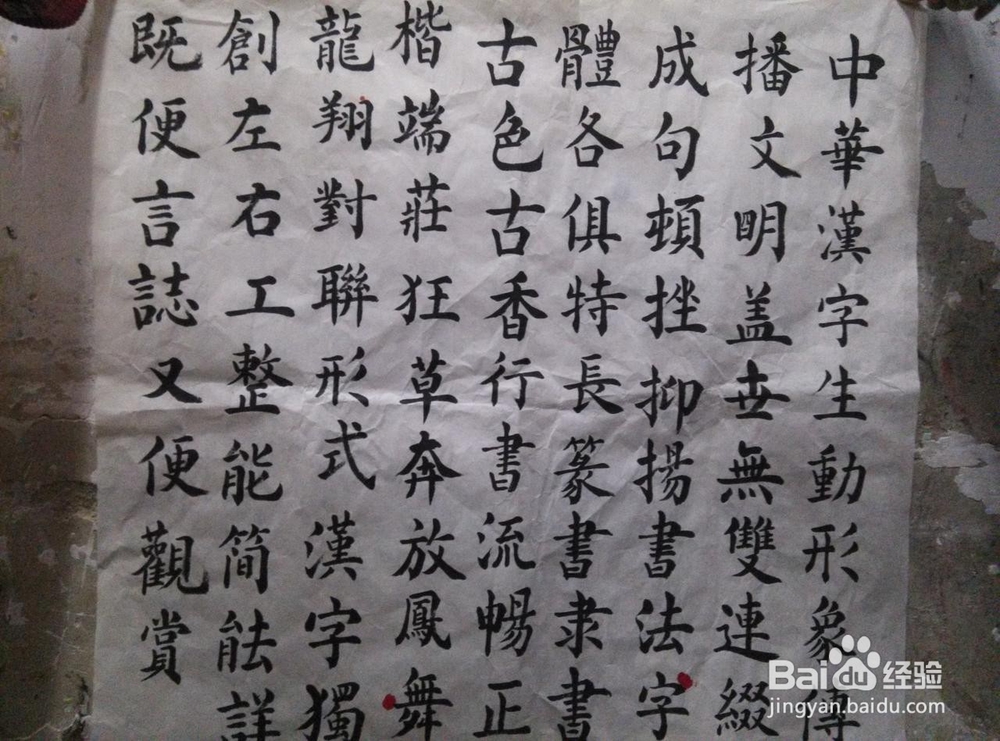 中華漢字生動形象傳
播文明盖世無雙連綴
成句頓挫抑揚書法字
體各俱特長篆書隶書
古色古香行書流暢正
楷端莊狂草奔放鳳舞
龍翔對聯形式漢字獨
創左右工整能简能詳
既便言誌又便觀賞
Baidu 经验
jingyan.baidu.com